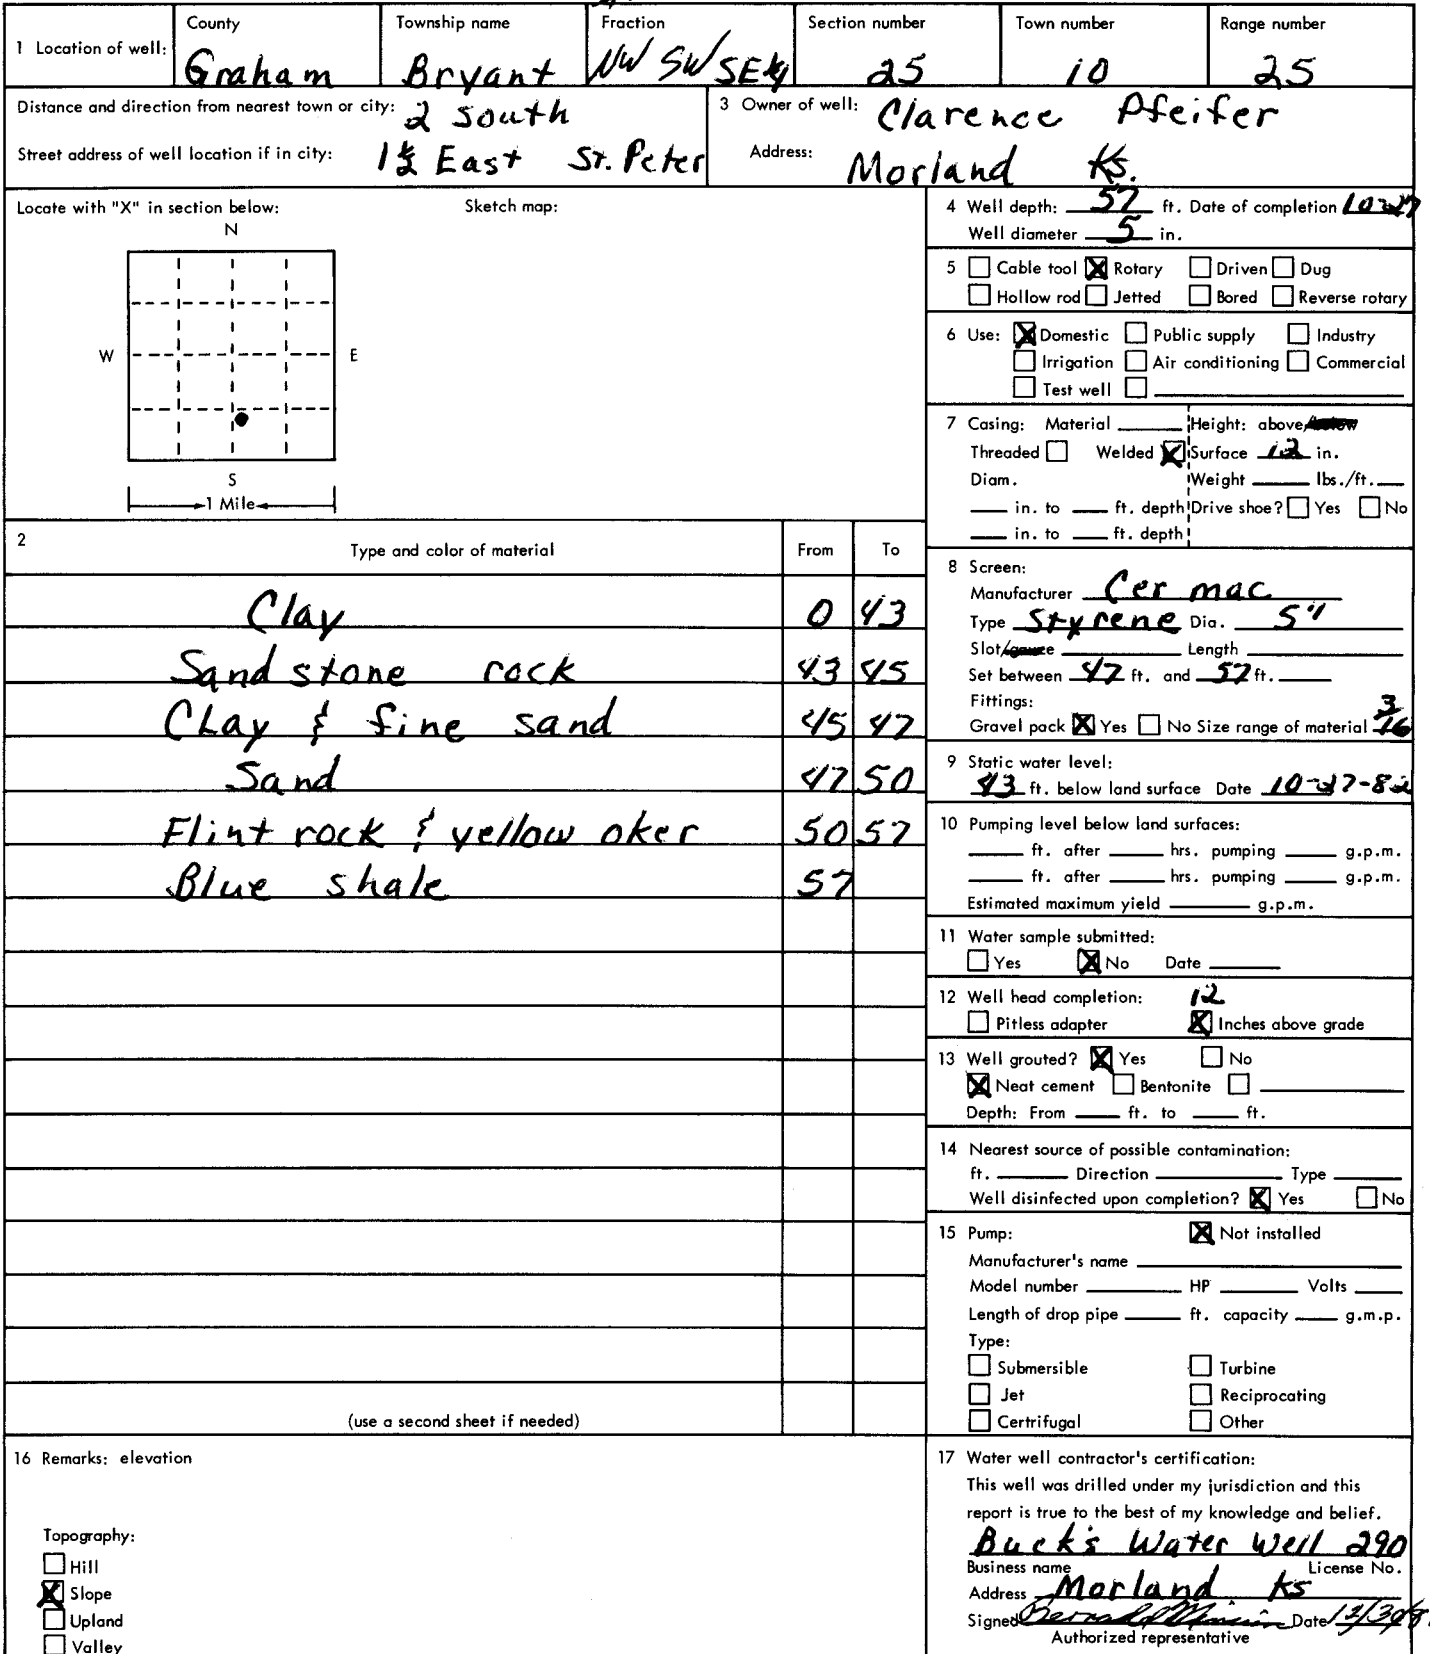 County Township name Fraction Section number Town number Range number
1 Location of well: Graham Bryant NW SW SE¼ 25 10 25
Distance and direction from nearest town or city: 2 South
Street address of well location if in city: 1½ East St. Peter
3 Owner of well: Clarence Pfeifer
Address: Morland Ks.
Locate with "X" in section below: Sketch map:
N
W E
S
1 Mile
2 Type and color of material From To
Clay 0 43
Sand stone rock 43 45
Clay & fine sand 45 47
Sand 47 50
Flint rock & yellow oker 50 57
Blue shale 57
(use a second sheet if needed)
16 Remarks: elevation
Topography:
Hill
X Slope
Upland
Valley
4 Well depth: 57 ft. Date of completion 10-27
Well diameter 5 in.
5 Cable tool X Rotary Driven Dug
Hollow rod Jetted Bored Reverse rotary
6 Use: X Domestic Public supply Industry
Irrigation Air conditioning Commercial
Test well
7 Casing: Material Height: above/below
Threaded Welded X Surface 12 in.
Diam. Weight lbs./ft.
in. to ft. depth Drive shoe? Yes No
in. to ft. depth
8 Screen:
Manufacturer Cer mac
Type Styrene Dia. 5"
Slot/gauze Length
Set between 47 ft. and 57 ft.
Fittings:
Gravel pack X Yes No Size range of material 3/16
9 Static water level:
43 ft. below land surface Date 10-27-82
10 Pumping level below land surfaces:
ft. after hrs. pumping g.p.m.
ft. after hrs. pumping g.p.m.
Estimated maximum yield g.p.m.
11 Water sample submitted:
Yes X No Date
12 Well head completion: 12
Pitless adapter X Inches above grade
13 Well grouted? X Yes No
X Neat cement Bentonite
Depth: From ft. to ft.
14 Nearest source of possible contamination:
ft. Direction Type
Well disinfected upon completion? X Yes No
15 Pump: X Not installed
Manufacturer's name
Model number HP Volts
Length of drop pipe ft. capacity g.m.p.
Type:
Submersible Turbine
Jet Reciprocating
Certrifugal Other
17 Water well contractor's certification:
This well was drilled under my jurisdiction and this
report is true to the best of my knowledge and belief.
Buck's Water Well 290
Business name License No.
Address Morland Ks
Signed Date 12/30/8
Authorized representative